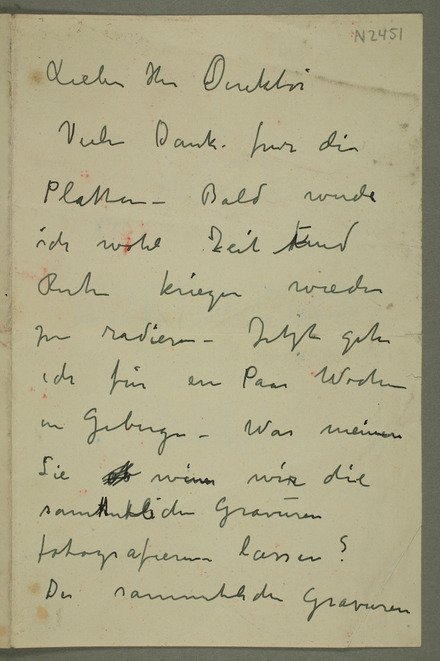 N2451
Lieber Herr Direktör
Viele Dank. fur die
Platten – Bald werde
ich wohl Zeit und
Ruhe kriegen wieder
zu radieren – Jetzt gehe
ich für en Paar Wochen
in Gebirge – Was meinen
Sie wenn wir die
sammtlichen Gravüren
fotografieren lassen?
Die sammtlichen Gravuren